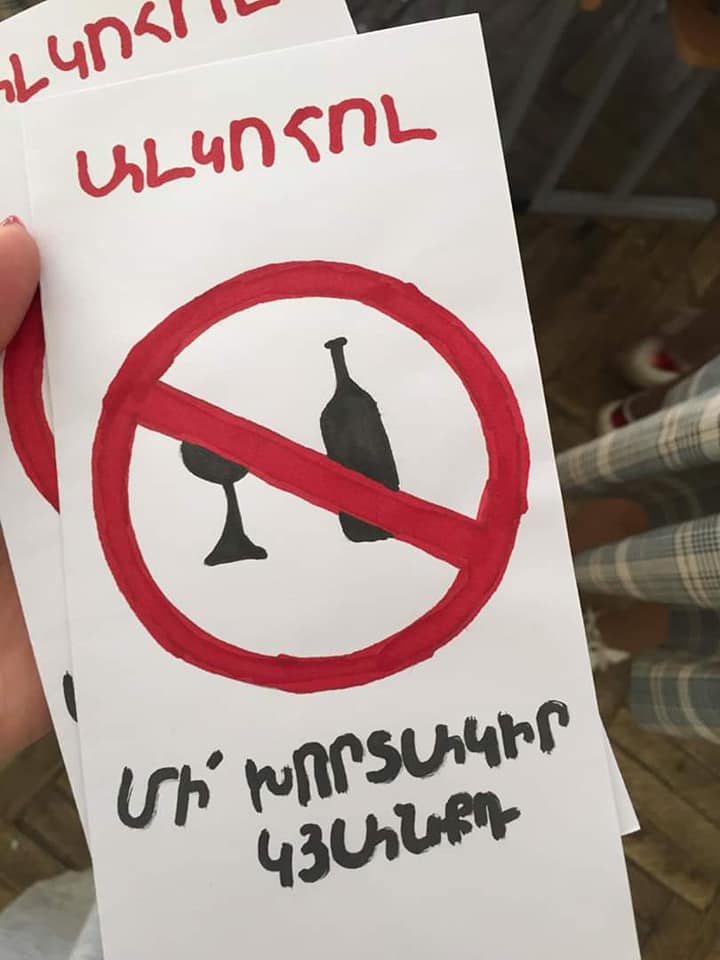 ԱԼԿՈՀՈԼ
ՄԻ՛ ԽՈՐՏԱԿԻՐ
ԿՅԱՆՔԴ